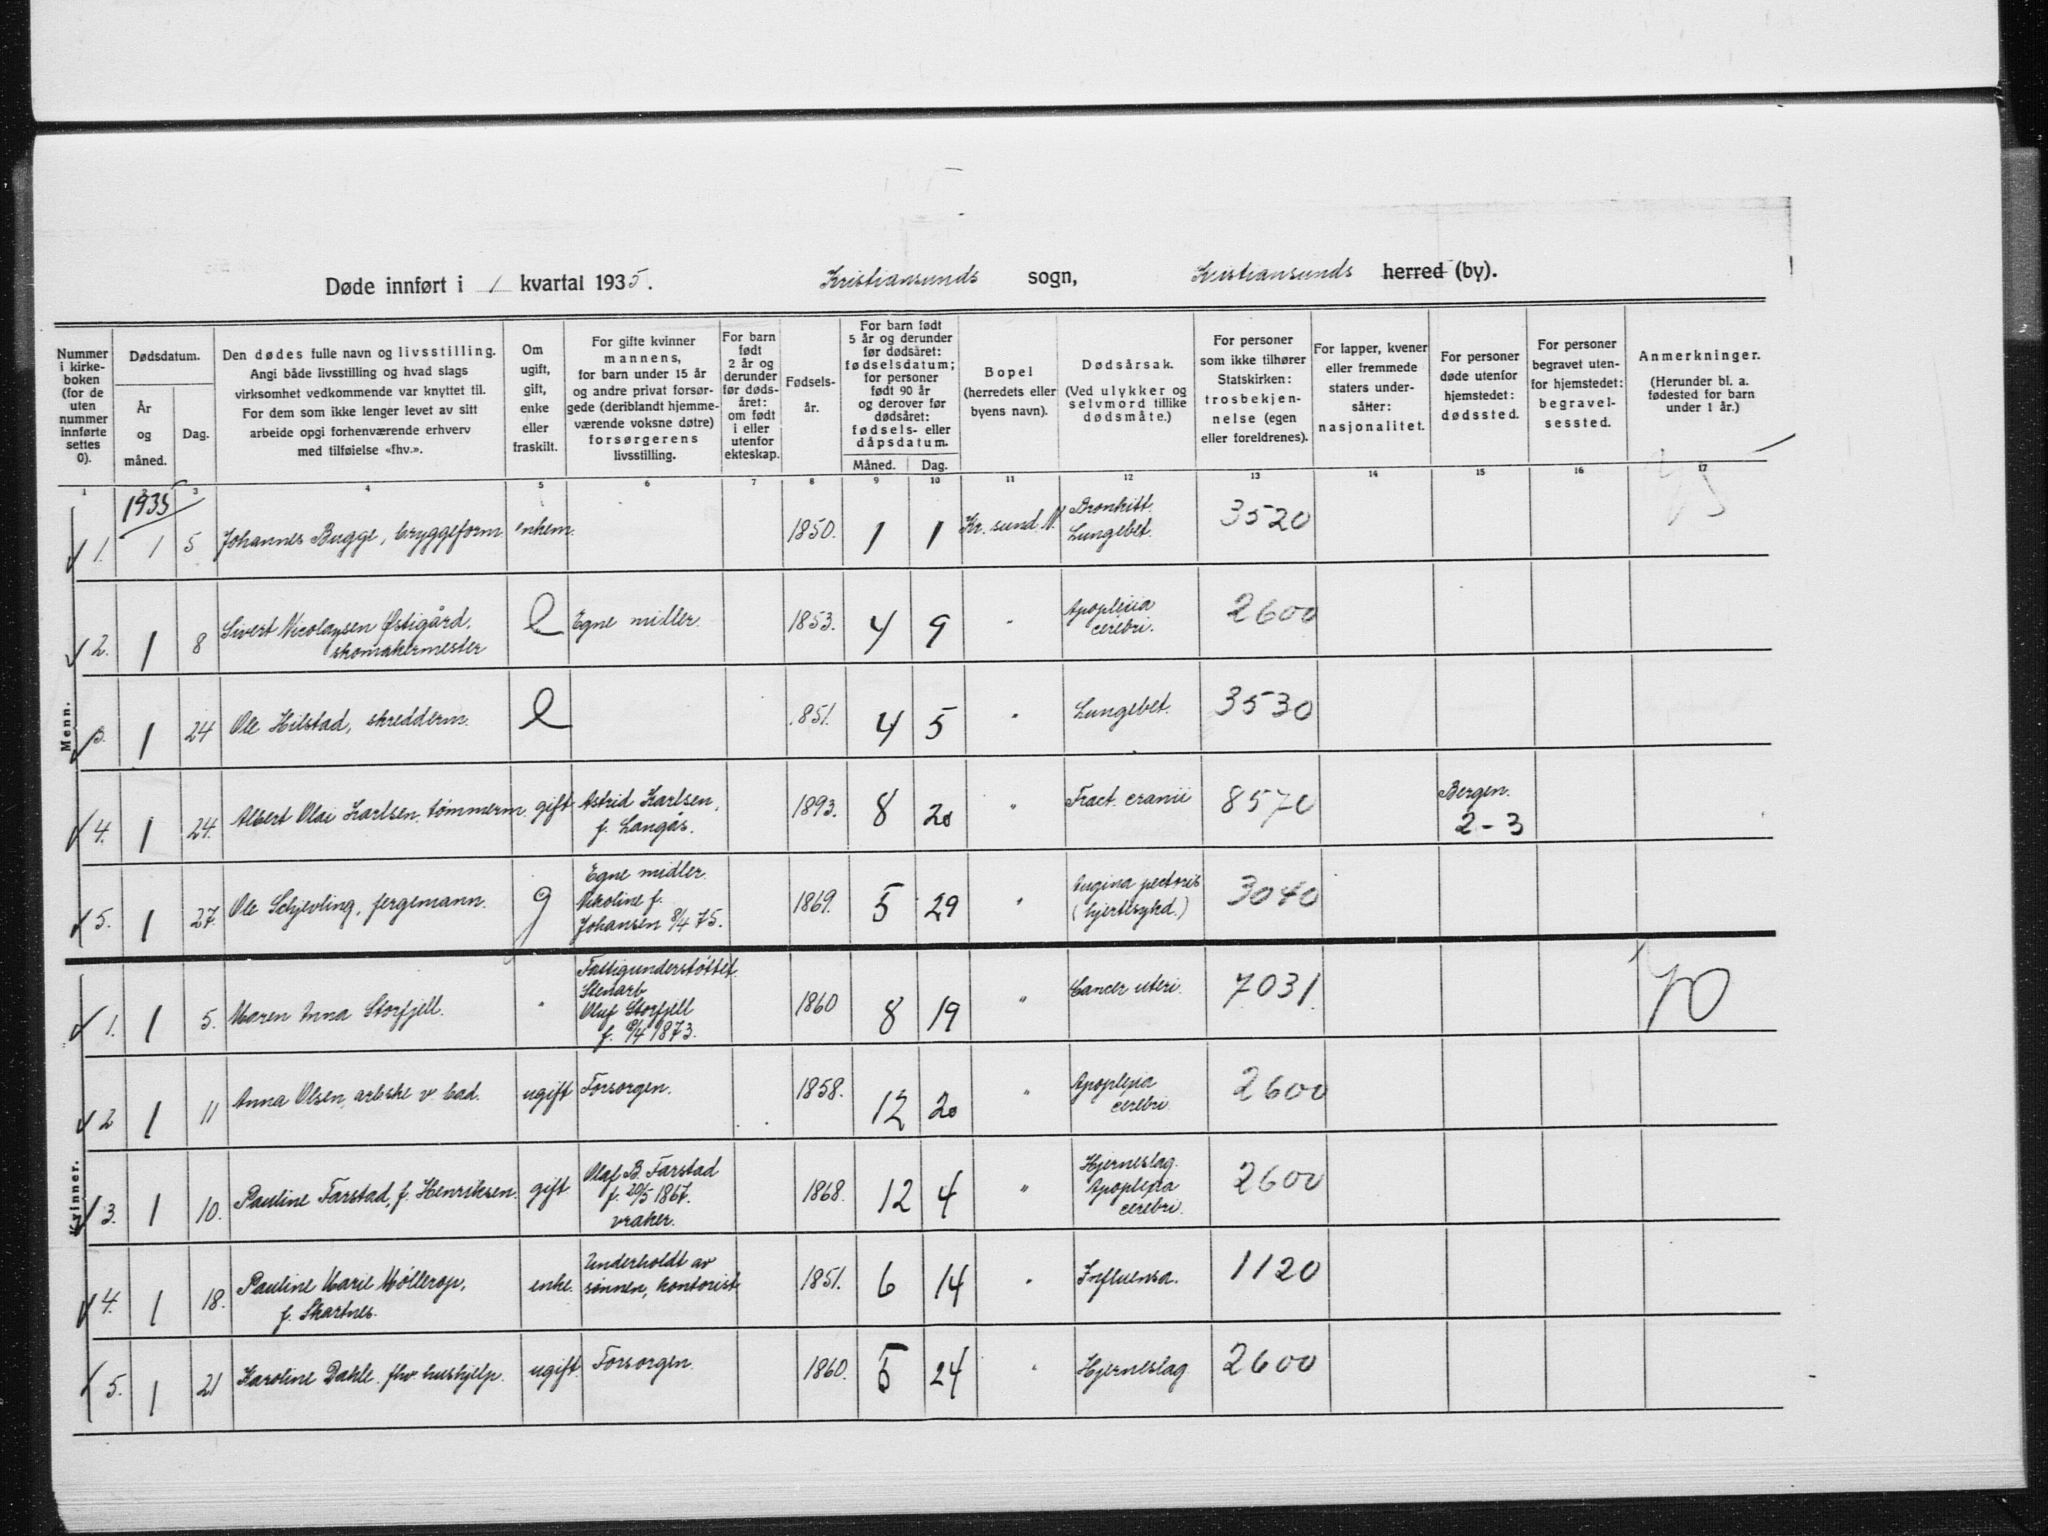 Døde innført i 1 kvartal 1935. Kristiansunds sogn, Kristiansunds herred (by).
Nummer i kirkeboken (for de uten nummer innførte settes 0).
Dødsdatum.
År og måned.
Dag.
Den dødes fulle navn og livsstilling.
Angi både livsstilling og hvad slags
virksomhet vedkommende var knyttet til.
For dem som ikke lenger levet av sitt
arbeide opgi forhenværende erhverv
med tilføielse «fhv.».
Om ugift, gift, enke eller fraskilt.
For gifte kvinner
mannens,
for barn under 15 år
og andre privat forsør-
gede (deriblandt hjemme-
værende voksne døtre)
forsørgerens
livsstilling.
For barn
født
2 år og
derunder
før døds-
året:
om født
i eller
utenfor
ekteskap.
Fødsels-
år.
For barn født
5 år og derunder
før dødsåret:
fødselsdatum;
for personer
født 90 år
og derover før
dødsåret:
fødsels- eller
dåpsdatum.
Måned. Dag.
Bopel
(herredets eller
byens navn).
Dødsårsak.
(Ved ulykker og
selvmord tillike
dødsmåte.)
For personer
som ikke tilhører
Statskirken:
trosbekjen-
nelse (egen
eller foreldrenes).
For lapper, kvener
eller fremmede
staters under-
såtter:
nasjonalitet.
For personer
døde utenfor
hjemstedet:
dødssted.
For personer
begravet uten-
for hjemstedet:
begravel-
sessted.
Anmerkninger.
(Herunder bl. a.
fødested for barn
under 1 år.)
1 2 3 4 5 6 7 8 9 10 11 12 13 14 15 16 17
1935
Menn.
1. 1 5 Johannes Bugge, bryggeform enkem. 1850. 1 1 Kr. sund N. Bronkitt. Lungebet. 3520
2. 1 8 Sivert Nicolaysen Østigård, skomakermester e Egne midler. 1853. 4 9 " Apoplexia cerebri. 2600
3. 1 24 Ole Hilstad, skredderm. e 1851. 4 5 " Lungebet. 3530
4. 1 24. Albert Olai Karlsen, tømmerm. gift Astrid Karlsen, f. Langås. 1893. 8 20 " Fract. cranii 8570 Bergen. 2-3
5. 1 27. Ole Schjevling, fergemann. g Egne midler. Nikoline f. Johansen 8/4 75. 1869. 5 29 " Angina pectoris (hjertesykd.) 3040
Kvinner.
1. 1 5. Maren Anna Storfjell. " Fattigunderstøttet. Stenarb Oluf Storfjell 1873. 1860 8 19 " Cancer uteri. 7031 70
2 1 11 Anna Olsen, arbske v bad. ugift Forsorgen. 1858. 12 20 " Apoplexia cerebri. 2600
3. 1 10. Pauline Farstad, f. Henriksen. gift Olaf B. Farstad f. 20/5 1867. vraker. 1868. 12 4 " Hjerneslag. Apoplexia cerebri. 2600
4. 1 18. Pauline Marie Møllerop, f. Skartnes. enke. Underholdt av sønnen, kontorist 1851. 6 14 " Influensa. 1120
5. 1 21 Karoline Dahle. fhv hushjelp. ugift. Forsorgen. 1860. 5 24 " Hjerneslag 2600